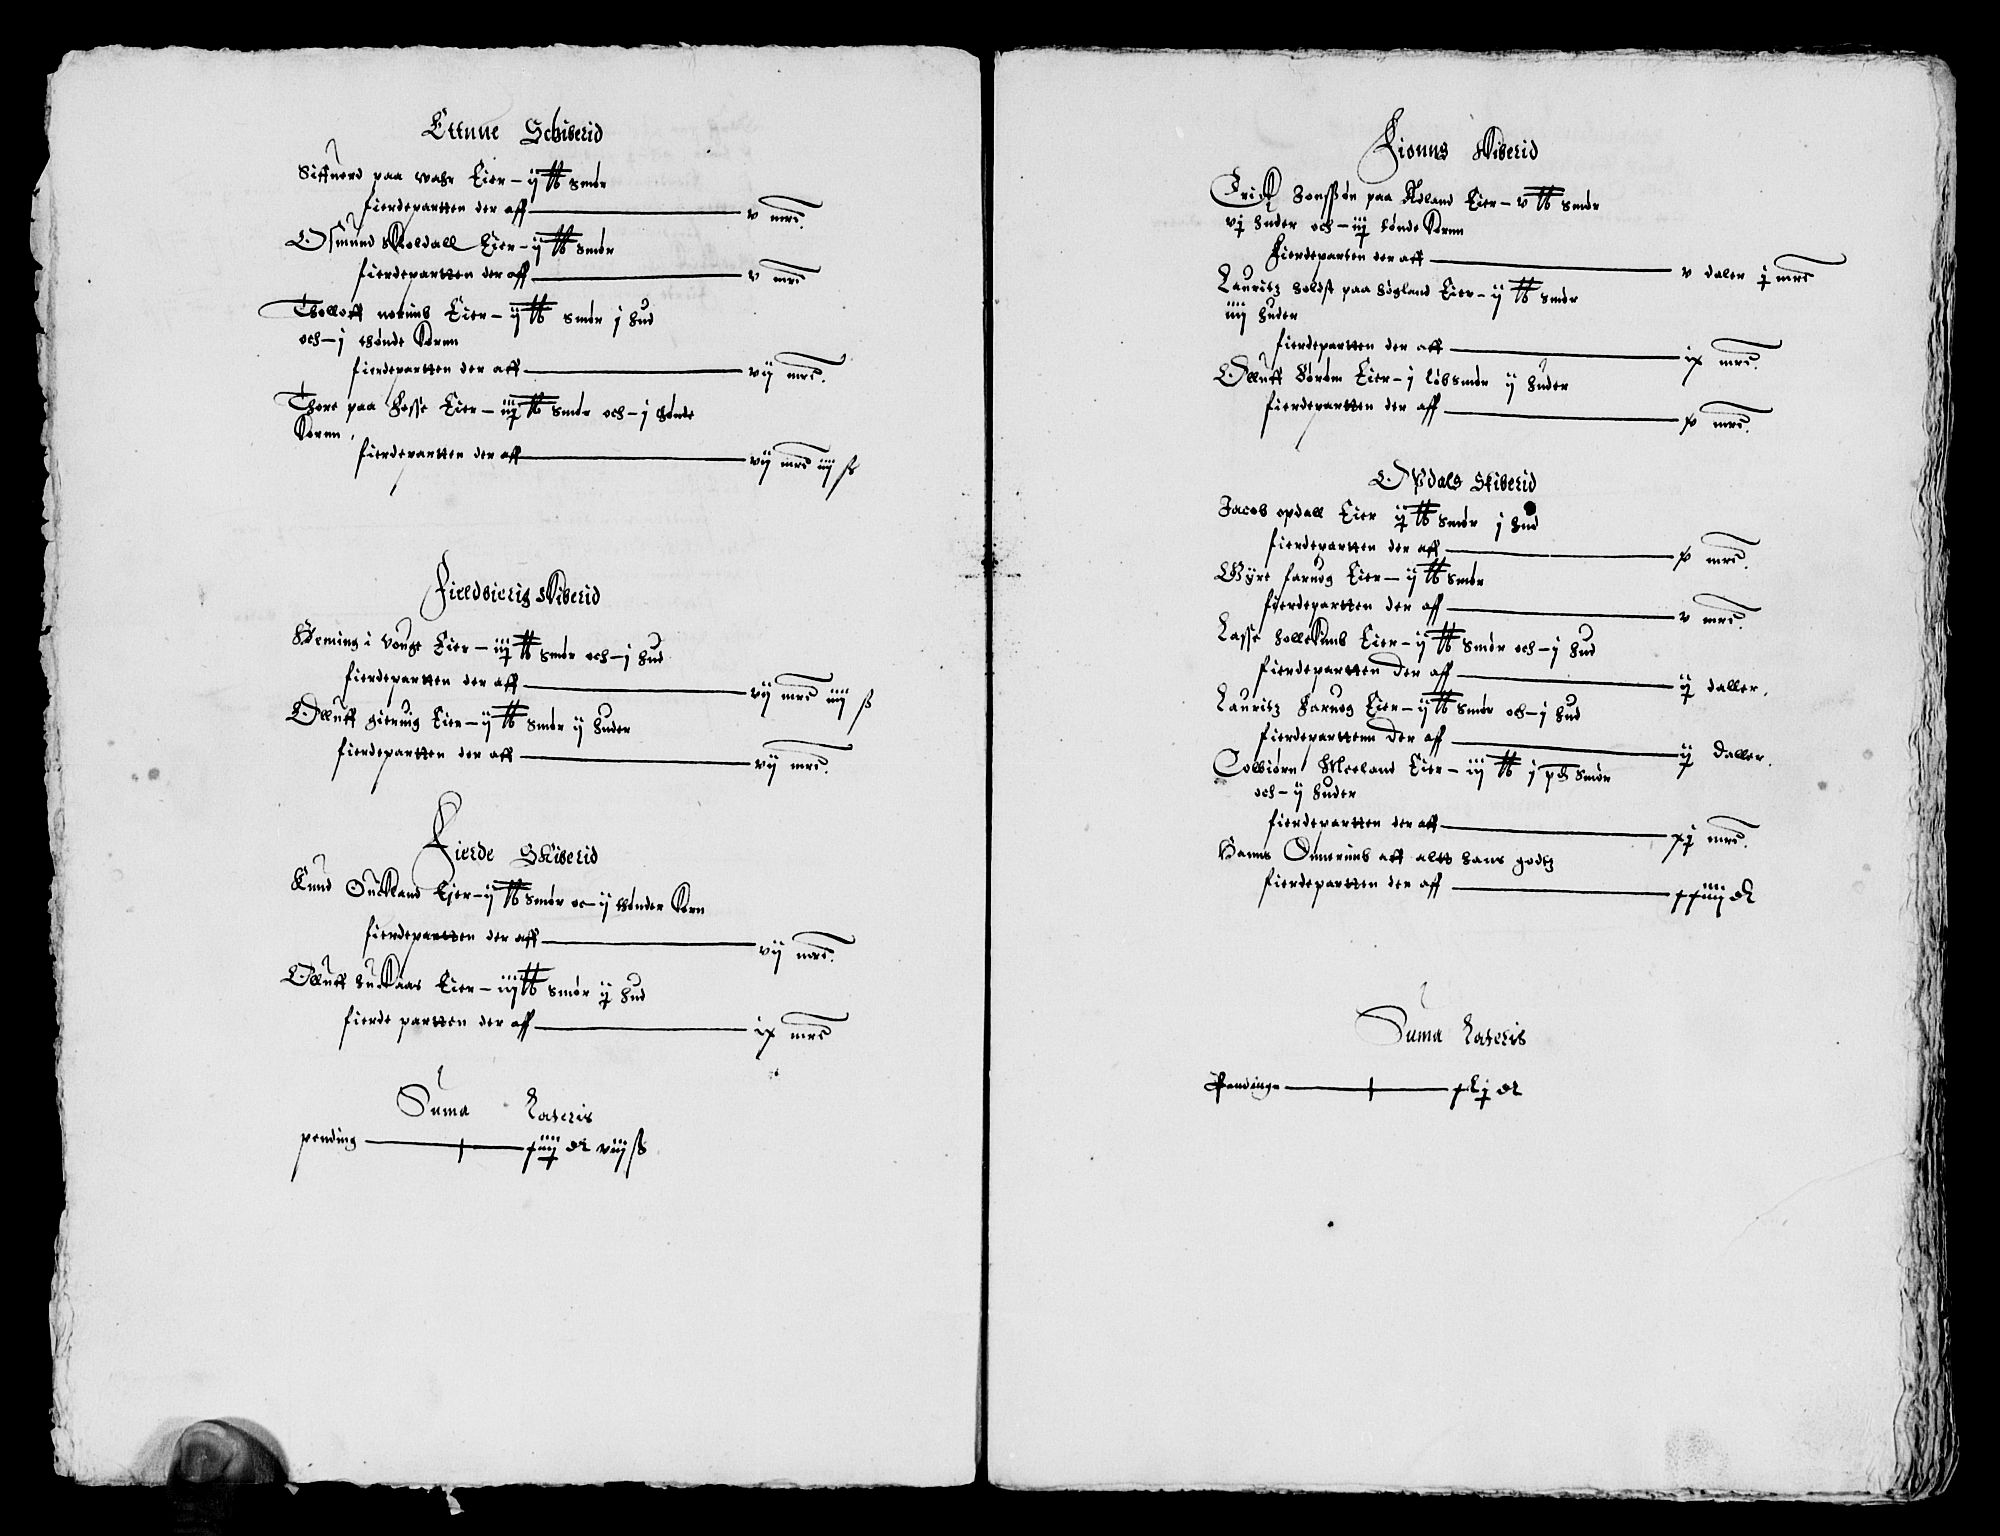 Ettnne Schiberid
Siffuerd paa wahr Eier – ij ℔ Smør
fierdepartten der aff — v mrc.
Osmund Skoldall Eier – ij ℔ Smør
fierdepartten der aff — v mrc
Tholloff nerimb Eier – ij ℔ Smør j hud
och – j thønde Kornn
fierdepartten der aff — vij mrc.
Thore paa Fosse Eier – iiij ℔ Smør och – j tønde
Kornn
fierdepartten der aff — vij mrc iiij ß
Fieldbierig Skiberid
Heming i vouge Eier – iij ℔ Smør och – j hud
fierdepartten der aff — vij mrc iiij ß
Olluff gieruig Eier – ij ℔ Smør ij huder
fierdepartten der aff — vij mrc.
Fierde Skiberid
Knud Ouckland Eier – ij ℔ Smør oc – ij thønder Korn
fierdepartten der aff — vij mrc.
Olluff huckaas Eier – iiij ℔ Smør ij hud
fierde partten der aff — ix mrc
Suma Lateris
pending — xiiij dlr viij ß
Fionns Skiberid
Erick Jonssøn paa Adland Eier – v ℔ Smør
vj huder och – iij tønde Kornn
Fierdeparten der aff — v daler j mrc
Lauritz holdst paa høgland Eier – ij ℔ Smør
iiij huder
fierdepartten der aff — ix mrc.
Olluff Sørøm Eier – j løb smør ij huder
fierdepartten der aff — x mrc.
Opdals Skiberid
Jacob opdall Eier ij ℔ Smør j hud
fierdepartten der aff — x mrc.
Gyre faruog Eier – ij ℔ Smør
fierdepartten der aff — v mrc.
Lasse hollekimb Eier – ij ℔ Smør och – j hud
fierdepartten Der aff — ij daller.
Lauritz Faruog Eier – ij ℔ Smør och – j hud
fierdepartenn Der aff — ij Daller.
Colbiørn Meeland Eier – iij ℔ j pd Smør
och – ij huder
fierdepartten der aff — xj mrc.
Hanns Onnerimb aff altt hans godtz
fierdepartten der aff — xxiiij dlr
Suma Lateris
Pendinge — xlj dlr